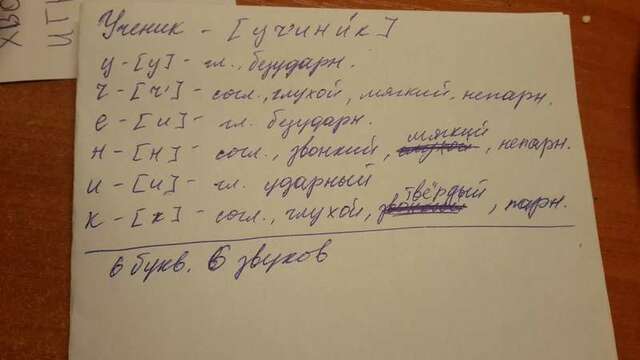 ХВО
ЦГН
Ученик - [уч'ин́ик]
у - [у] - гл., безударн.
ч - [ч'] - согл., глухой, мягкий, непарн.
е - [и] - гл. безударн.
н - [н] - согл., звонкий, мягкий, непарн.
и - [и] - гл. ударный
к - [к] - согл., глухой, твёрдый, парн.
6 букв. 6 звуков